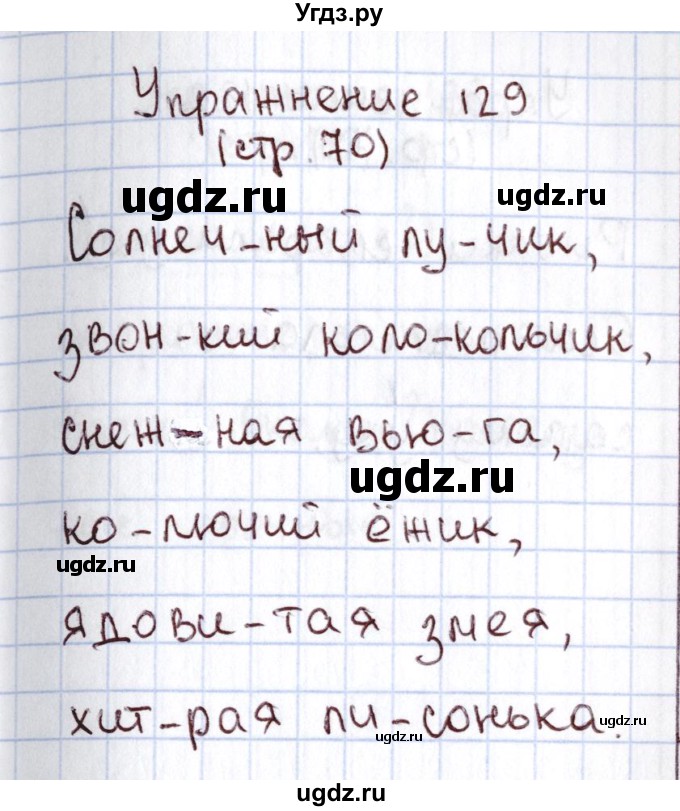 Угдз.ру
Упражнение 129
(стр. 70)
ugdz.ru ugdz.ru
Солнеч-ный лу-чик,
звон-кий коло-кольчик,
снеж-ная вью-га,
ugdz.ru
ко-лючий ёжик,
ugdz.ru
ядови-тая змея,
хит-рая ли-сонька.
ugdz.ru
ugdz.ru
ugdz.ru